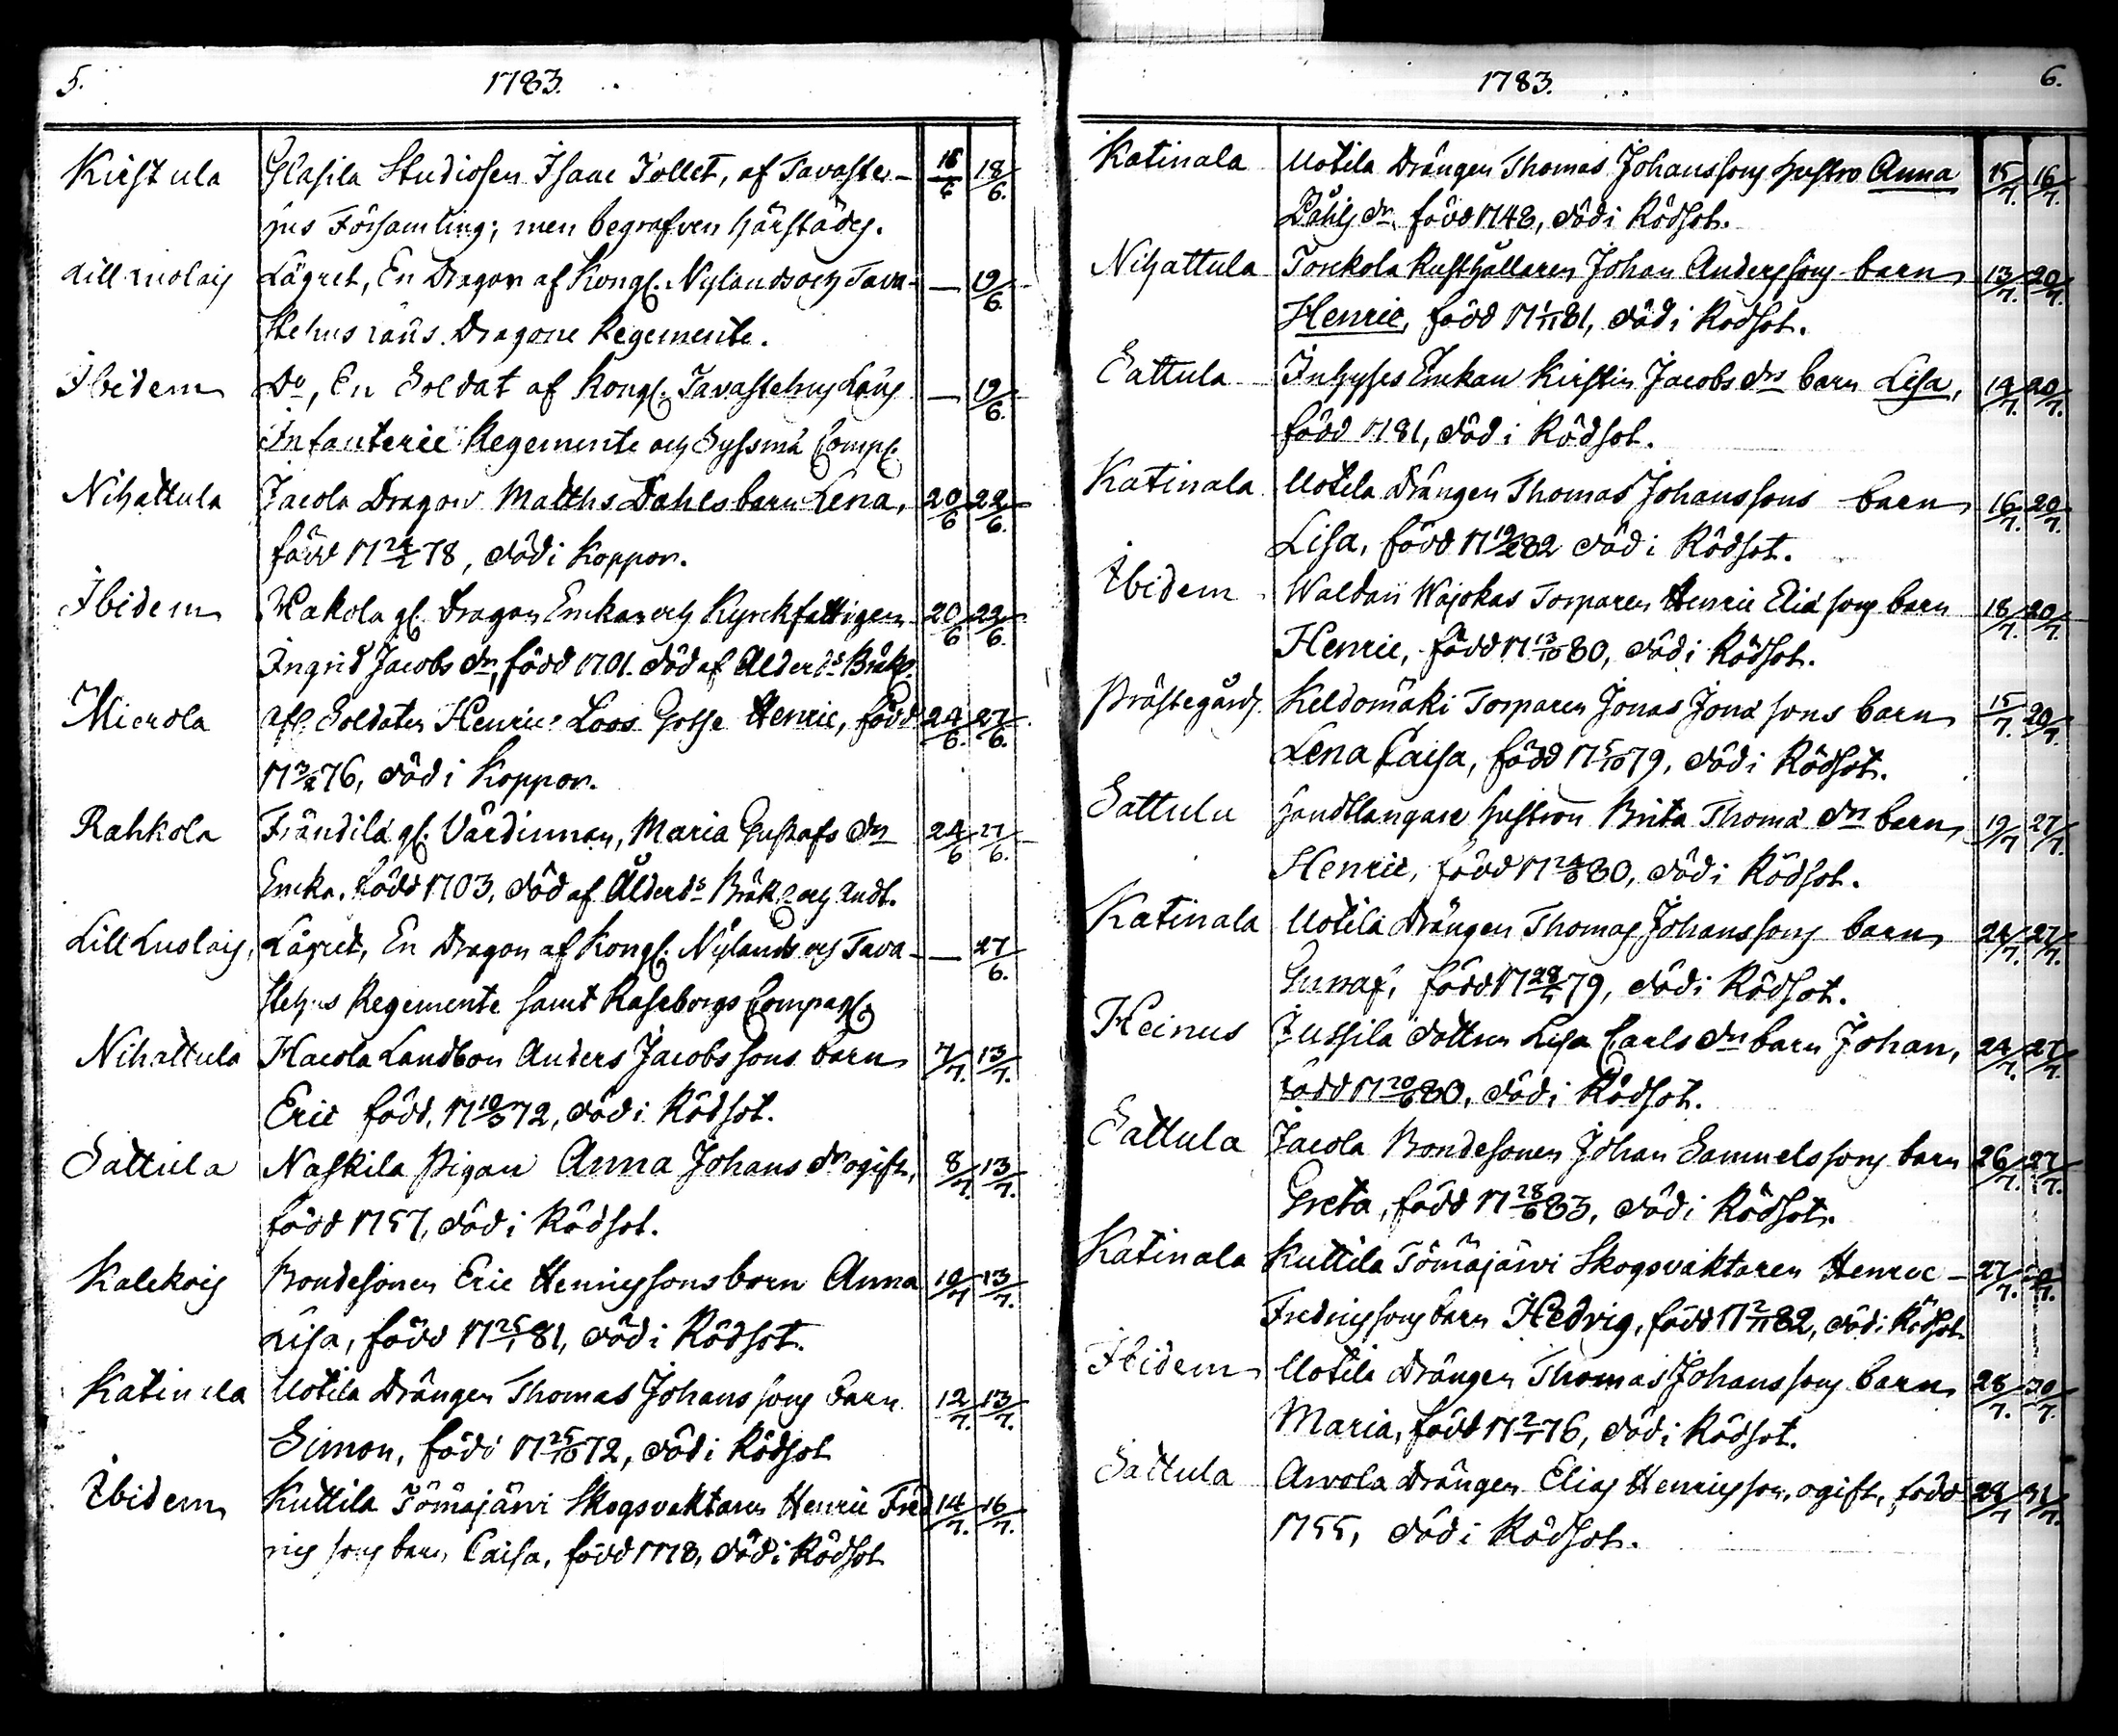 5. 1783.
Kirstula Glasila Studiosen Isaac Tollet, af Tavaste- 15/6 18/6.
hus Församling; men begrafven härstädes.
Lill Luolais Lägret, En Dragon af Kongl. Nylands och Tava- — 19/6.
stehus Läns Dragone Regemente.
Ibidem Do, En Soldat af Kongl. Tavastehus Läns — 19/6.
Infanterie Regemente och Syssmä Comp.
Nihattula Jacola Dragon Matths Dahls barn Lena, 20/6 22/6.
född 17 24/2 78, död i Koppor.
Ibidem Makola gl. Dragon Enkan och Kyrckfattigen 20/6 22/6.
Ingrid Jacobs dr, född 1701. död af Ålderds Bräkl.
Mierola afl. Soldaten Henrics Loos Gosse Henric, född 24/6. 27/6.
17 3/2 76, död i Koppor.
Rahkola Frändilä gl. Värdinnan, Maria Gustafs dr 24/6 27/6.
Encka. född 1703, död af Ålderds Bräkl. och Andt.
Lill Luolais, Lägret, En Dragon af Kongl. Nylands och Tava- — 27/6.
stehus Regemente samt Raseborgs Compagl.
Nihattula Hacola Landbon Anders Jacobssons barn 7/7. 13/7.
Eric född, 17 10/3 72, död i Rödsot.
Sattula Naskila Pigan Anna Johans dr ogift, 8/7. 13/7.
född 1757, död i Rödsot.
Kalekois Bondesonen Eric Henricssons barn Anna 10/7 13/7.
Lisa, född 17 25/1 81, död i Rödsot.
Katinala Uotila Drängen Thomas Johanssons barn 12/7. 13/7.
Simon, född 17 25/10 72, död i Rödsot
Ibidem Kuttila Tömäjärvi Skogsvaktaren Henric Fred 14/7. 16/7.
rics sons barn, Caisa, född 1778, död i Rödsot
1783. 6.
Katinala Uotila Drängen Thomas Johanssons hustro Anna 15/7. 16/7.
Påhls dr, född 1748, död i Rödsot.
Nihattula Torckola Rusthållaren Johan Anderssons barn 13/7. 20/7.
Henric, född 17 1/11 81, död i Rödsot.
Sattula Inhyses Enckan Kirstin Jacobs drs barn Lisa, 14/7. 20/7.
född 1781, död i Rödsot.
Katinala Uotila Drängen Thomas Johanssons barn 16/7. 20/7.
Lisa, född 17 82 död i Rödsot.
Ibidem Wajokas Torparen Henric Eliä sons barn 18/7. 20/7.
Henric, född 17 13/10 80, död i Rödsot.
Prästegård, Keldomäki Torparen Jonas Jonä sons barn 15/7. 20/7.
Lena Caisa, född 17 5/10 79, död i Rödsot.
Sattula Handtlangare hustrun Brita Thomä drs barn 19/7 27/7.
Henric, född 17 24/8 80, död i Rödsot.
Katinala Uotila Drängen Thomas Johanssons barn 24/7. 27/7.
född 17 79, död i Rödsot.
Heinus Jussila dottren Lisa Carls drs barn Johan, 24/7. 27/7.
född 17 20/6 80, död i Rödsot.
Sattula Jacola Bondesonen Johan Samuelssons barn 26/7. 27/7.
Greta, född 17 28/6 83, död i Rödsot.
Katinala Kuttila Tömäjärvi Skogsvaktaren Henric- 27/7.
Fredricssons barn Hedvig, född 17 2/11 82, död i Rödsot
Ibidem Uotila Drängen Thomas Johanssons barn 28/7. 30/7.
Maria, född 17 2/1 76, död i Rödsot.
Sattula Arvola Drängen Elias Henricsson, ogift, född 29/7 31/7.
1755, död i Rödsot.